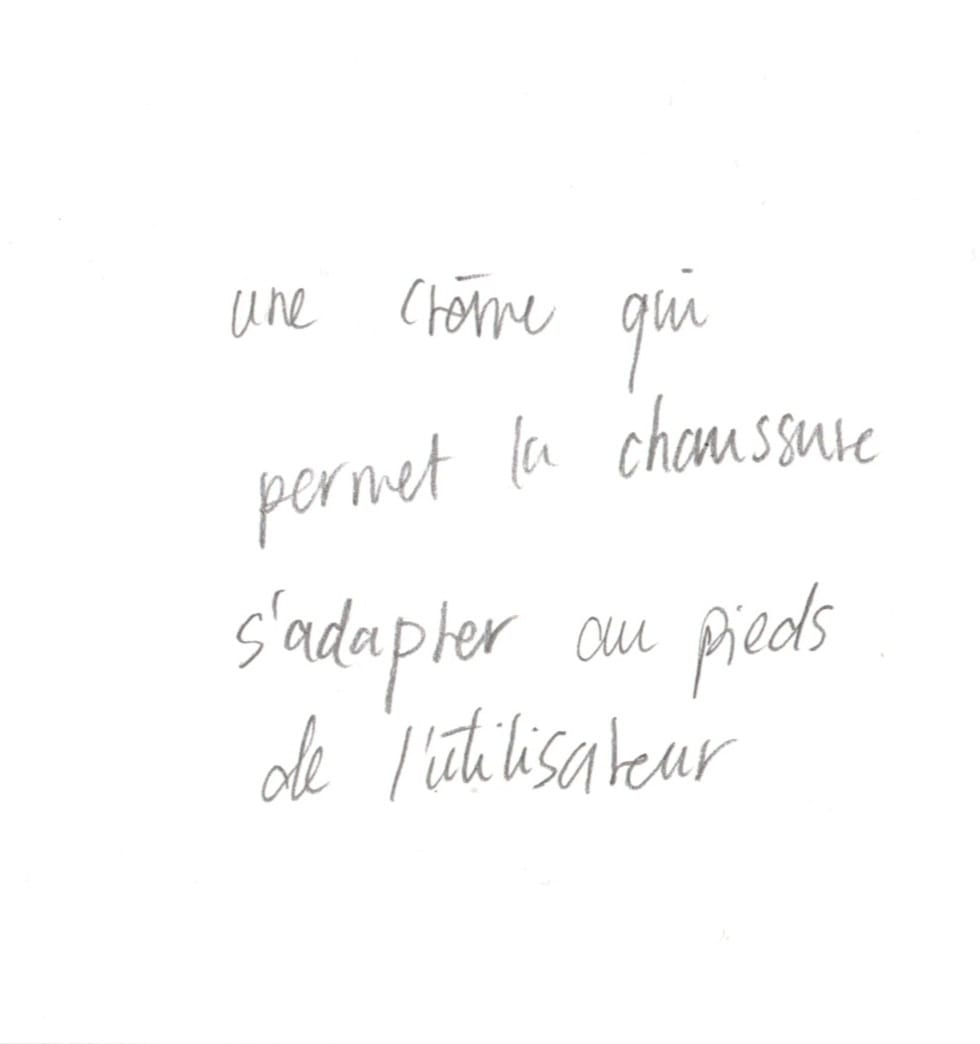 une crème qui
permet la chaussure
s'adapter au pieds
de l'utilisateur